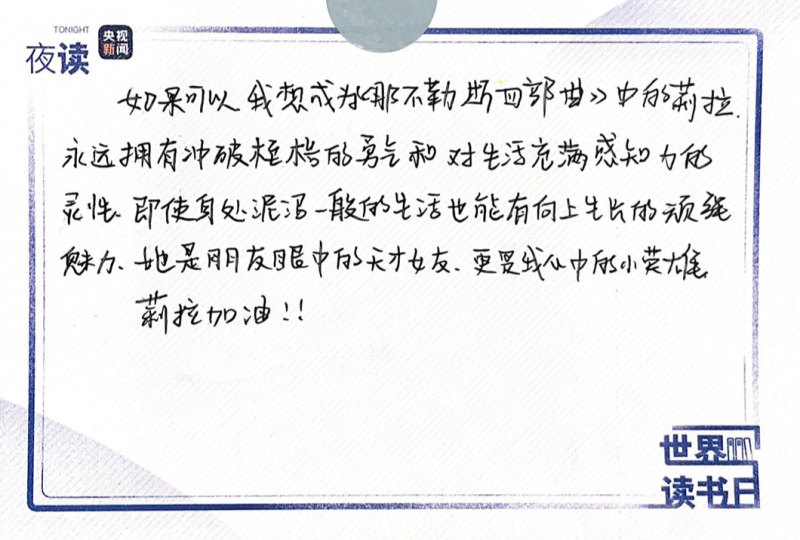 TONIGHT
夜读
央视
新闻
如果可以我想成为《那不勒斯四部曲》中的莉拉.
永远拥有冲破桎梏的勇气和对生活充满感知力的
灵性、即使身处泥沼一般的生活也能有向上生长的顽强
魅力、她是朋友眼中的天才女友、更是我心中的小英雄
莉拉加油!!
世界
读书日